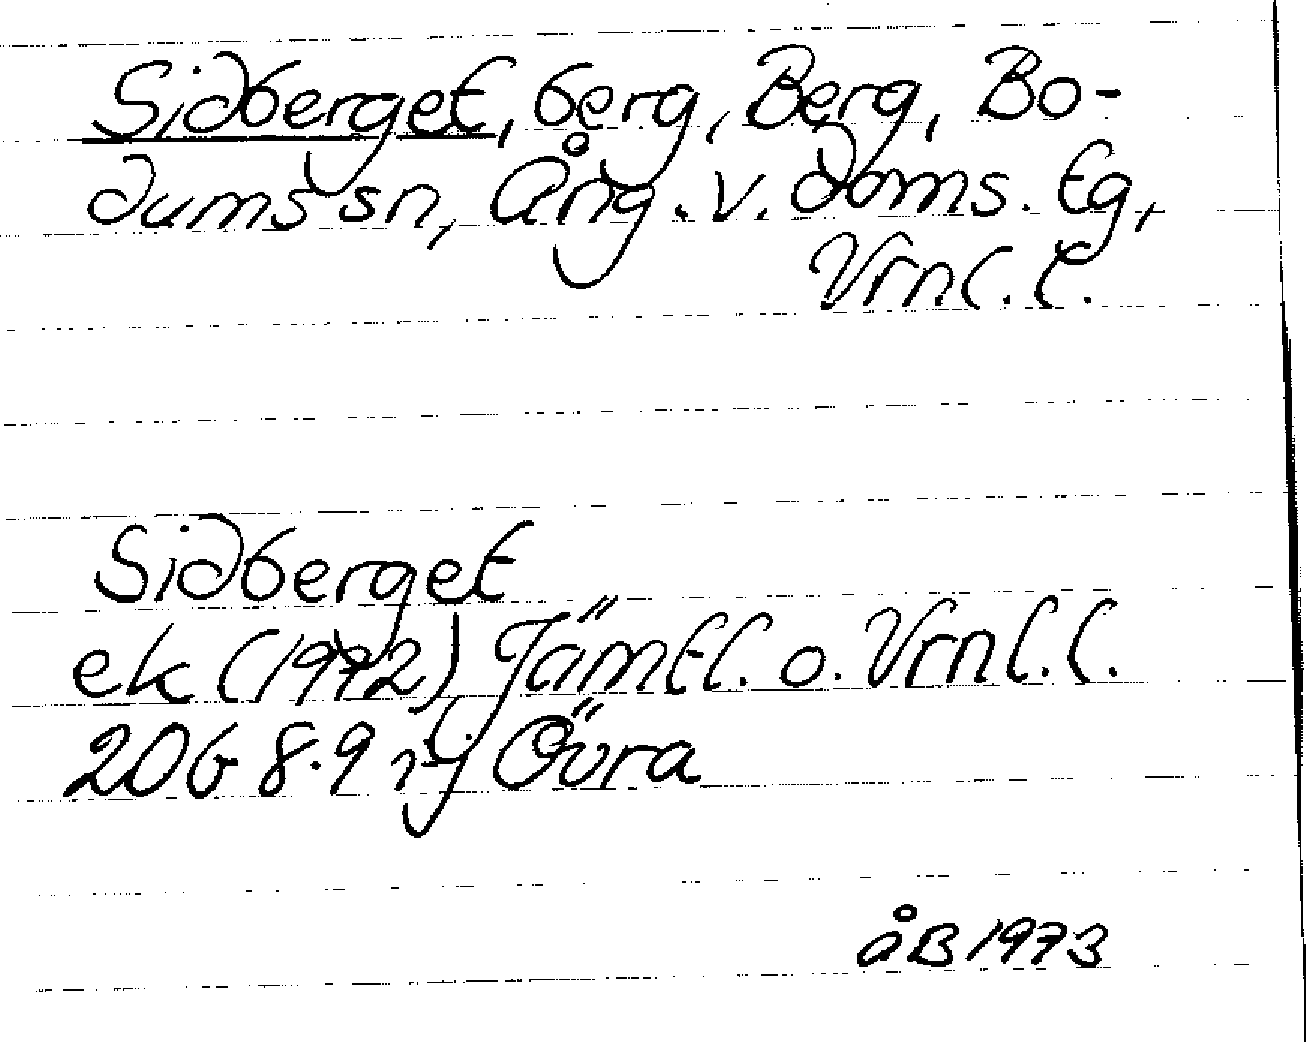 Sidberget, berg, Berg, Bo-
dums sn, Ång. v. doms. tg,
Vrnl. l.
Sidberget
ek (1972) Jämtl. o. Vrnl. l.
206 8.9 ij Övra
åB 1973